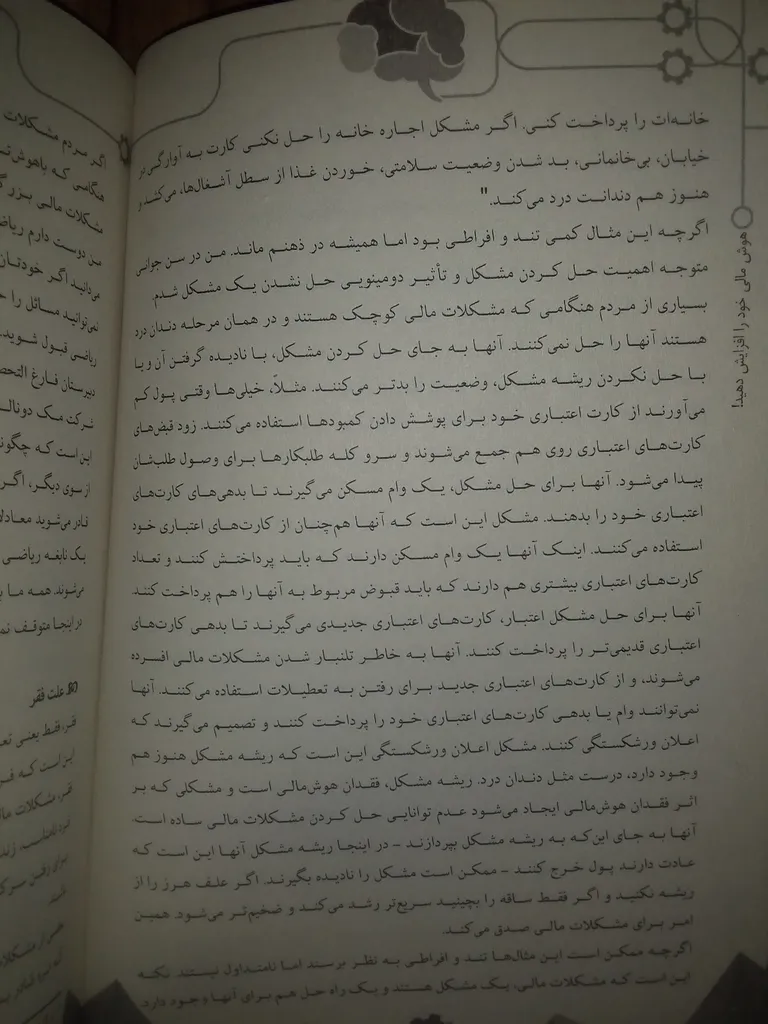 خانه‌ات را پرداخت کنی. اگر مشکل اجاره خانه را حل نکنی کارت به آوارگی در
خیابان، بی‌خانمانی، بد شدن وضعیت سلامتی، خوردن غذا از سطل آشغال‌ها، می‌کشد و
هنوز هم دندانت درد می‌کند."
اگرچه این مثال کمی تند و افراطی بود اما همیشه در ذهنم ماند. من در سن جوانی
متوجه اهمیت حل کردن مشکل و تأثیر دومینویی حل نشدن یک مشکل شدم.
بسیاری از مردم هنگامی که مشکلات مالی کوچک هستند و در همان مرحله دندان درد
هستند آنها را حل نمی‌کنند. آنها به جای حل کردن مشکل، با نادیده گرفتن آن و یا
با حل نکردن ریشه مشکل، وضعیت را بدتر می‌کنند. مثلاً، خیلی‌ها وقتی پول کم
می‌آورند از کارت اعتباری خود برای پوشش دادن کمبودها استفاده می‌کنند. زود قبض‌های
کارت‌های اعتباری روی هم جمع می‌شوند و سرو کله طلبکارها برای وصول طلب‌شان
پیدا می‌شود. آنها برای حل مشکل، یک وام مسکن می‌گیرند تا بدهی‌های کارت‌های
اعتباری خود را بدهند. مشکل این است که آنها هم‌چنان از کارت‌های اعتباری خود
استفاده می‌کنند. اینک آنها یک وام مسکن دارند که باید پرداختش کنند و تعداد
کارت‌های اعتباری بیشتری هم دارند که باید قبوض مربوط به آنها را هم پرداخت کنند.
آنها برای حل مشکل اعتبار، کارت‌های اعتباری جدیدی می‌گیرند تا بدهی کارت‌های
اعتباری قدیمی‌تر را پرداخت کنند. آنها به خاطر تلنبار شدن مشکلات مالی افسرده
می‌شوند، و از کارت‌های اعتباری جدید برای رفتن به تعطیلات استفاده می‌کنند. آنها
نمی‌توانند وام یا بدهی کارت‌های اعتباری خود را پرداخت کنند و تصمیم می‌گیرند که
اعلان ورشکستگی کنند. مشکل اعلان ورشکستگی این است که ریشه مشکل هنوز هم
وجود دارد، درست مثل دندان درد. ریشه مشکل، فقدان هوش‌مالی است و مشکلی که بر
اثر فقدان هوش‌مالی ایجاد می‌شود عدم توانایی حل کردن مشکلات مالی ساده است.
آنها به جای این‌که به ریشه مشکل بپردازند – در اینجا ریشه مشکل آنها این است که
عادت دارند پول خرج کنند – ممکن است مشکل را نادیده بگیرند. اگر علف هرز را از
ریشه نکنید و اگر فقط ساقه را بچینید سریع‌تر رشد می‌کند و ضخیم‌تر می‌شود. همین
امر برای مشکلات مالی صدق می‌کند.
اگرچه ممکن است این مثال‌ها تند و افراطی به نظر برسند اما نامتداول نیستند. نکته
این است که مشکلات مالی، یک مشکل هستند و یک راه حل هم برای آنها وجود دارد.
هوش مالی خود را افزایش دهید!
اگر مردم مشکلات
هنگامی که باهوش‌تر
مشکلات مالی بزرگ
من دوست دارم
می‌دانید اگر خودتان
نمی‌توانید مسائل را
ریاضی قبول شوید.
دبیرستان فارغ
شرکت مک
این است که
از سوی دیگر، اگر
قادر می‌شوید
یک نابغه ریاضی
می‌شوند. همه ما
در اینجا متوقف
علت فقر
فقر، فقط یعنی
این است که
فقر، مشکلات